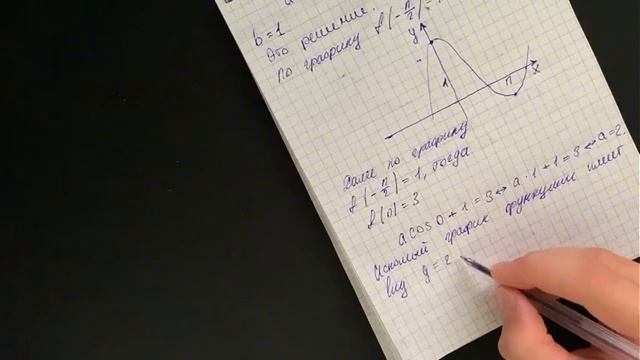 b=1
Это решение.
По графику f(-π/2)=
y
1
π
x
Далее по графику
f(-π/2)=1, тогда
f(0)=3
a cos 0+1=3↔a·1+1=3↔a=2.
Искомый график функции имеет
вид y=2